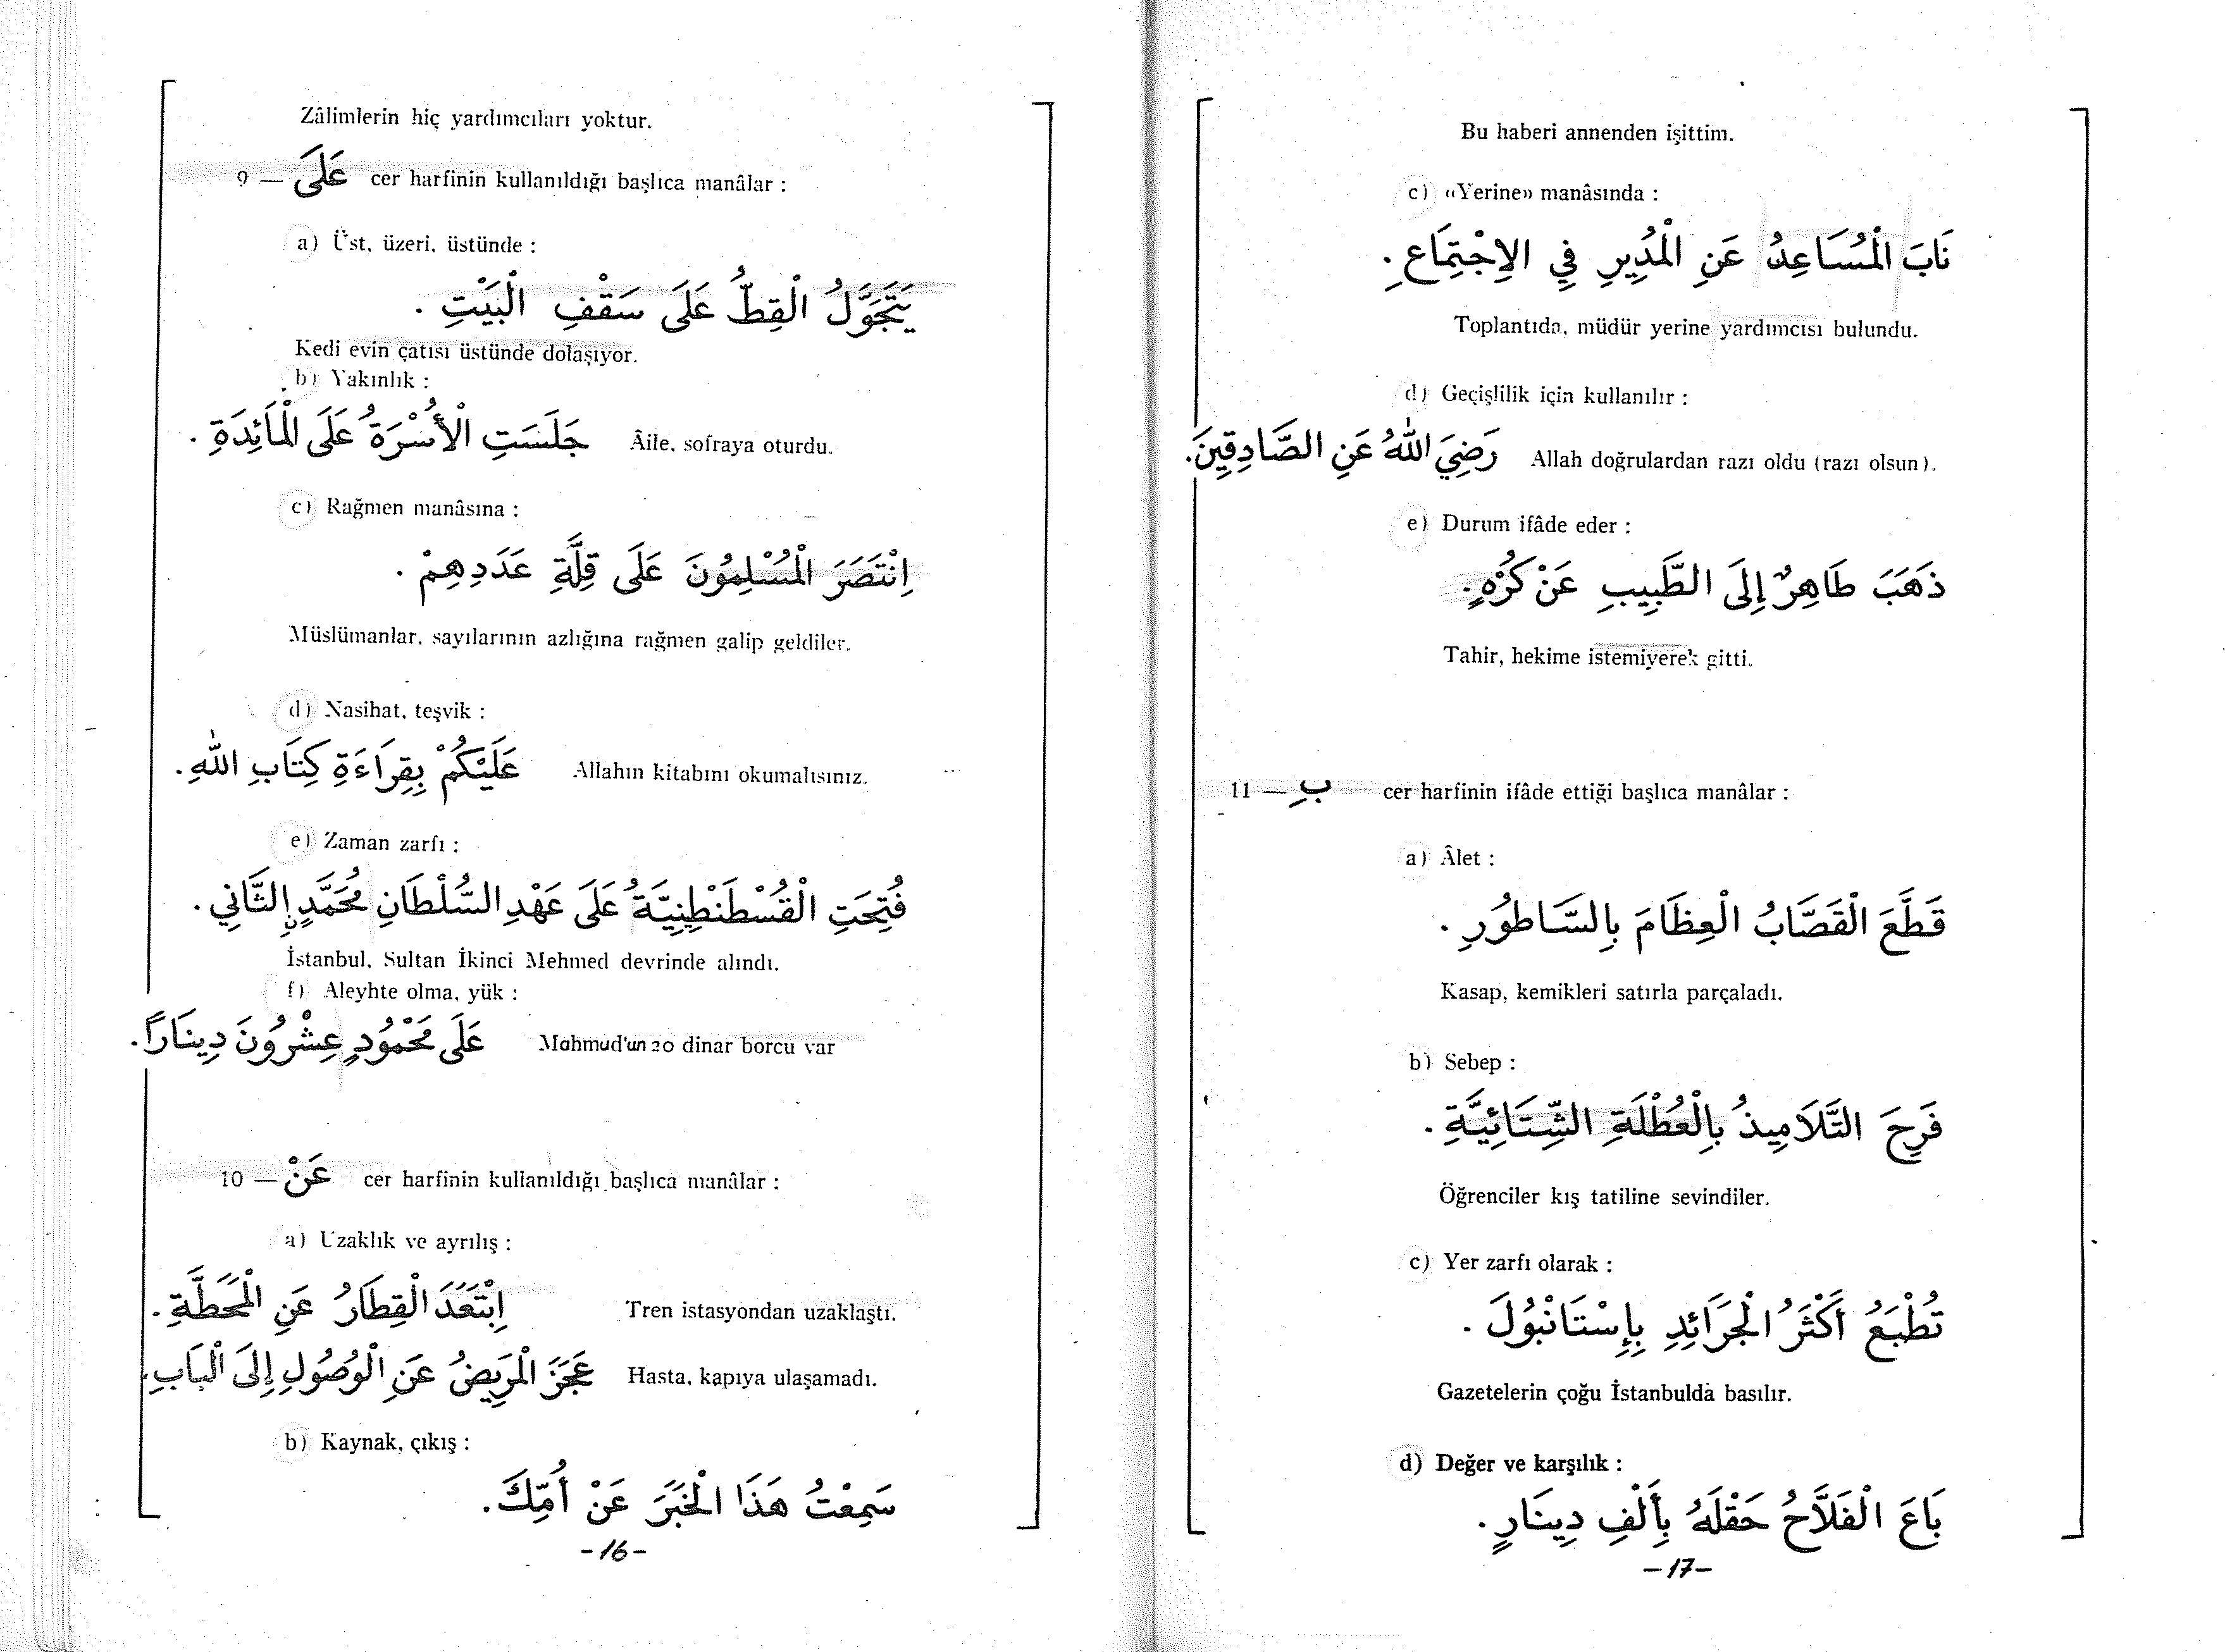 Zâlimlerin hiç yardımcıları yoktur.
9 — عَلَى cer harfinin kullanıldığı başlıca manâlar :
a) Üst, üzeri, üstünde :
يَتَجَوَّلُ الْقِطُّ عَلَى سَقْفِ الْبَيْتِ .
Kedi evin çatısı üstünde dolaşıyor.
b) Yakınlık :
جَلَسَتِ الْأُسْرَةُ عَلَى الْمَائِدَةِ . Âile, sofraya oturdu.
c) Rağmen manâsına :
اِنْتَصَرَ الْمُسْلِمُونَ عَلَى قِلَّةِ عَدَدِهِمْ .
Müslümanlar, sayılarının azlığına rağmen galip geldiler.
d) Nasihat, teşvik :
عَلَيْكُمْ بِقِرَاءَةِ كِتَابِ اللهِ . Allahın kitabını okumalısınız.
e) Zaman zarfı :
فُتِحَتِ الْقُسْطَنْطِينِيَّةُ عَلَى عَهْدِ السُّلْطَانِ مُحَمَّدٍ نِ الثَّانِي .
İstanbul, Sultan İkinci Mehmed devrinde alındı.
f) Aleyhte olma, yük :
عَلَى مَحْمُودٍ عِشْرُونَ دِينَارًا . Mahmud'un 20 dinar borcu var
10 — عَنْ cer harfinin kullanıldığı başlıca manâlar :
a) Uzaklık ve ayrılış :
اِبْتَعَدَ الْقِطَارُ عَنِ الْمَحَطَّةِ . Tren istasyondan uzaklaştı.
عَجَزَ الْمَرِيضُ عَنِ الْوُصُولِ إِلَى الْبَابِ . Hasta, kapıya ulaşamadı.
b) Kaynak, çıkış :
سَمِعْتُ هَذَا الْخَبَرَ عَنْ أُمِّكَ .
-16-
Bu haberi annenden işittim.
c) «Yerine» manâsında :
نَابَ الْمُسَاعِدُ عَنِ الْمُدِيرِ فِي الِاجْتِمَاعِ .
Toplantıda, müdür yerine yardımcısı bulundu.
d) Geçişlilik için kullanılır :
رَضِيَ اللهُ عَنِ الصَّادِقِينَ . Allah doğrulardan razı oldu (razı olsun).
e) Durum ifâde eder :
ذَهَبَ طَاهِرٌ إِلَى الطَّبِيبِ عَنْ كُرْهٍ .
Tahir, hekime istemiyerek gitti.
11 — بِ cer harfinin ifâde ettiği başlıca manâlar :
a) Âlet :
قَطَّعَ الْقَصَّابُ الْعِظَامَ بِالسَّاطُورِ .
Kasap, kemikleri satırla parçaladı.
b) Sebep :
فَرِحَ التَّلَامِيذُ بِالْعُطْلَةِ الشِّتَائِيَّةِ .
Öğrenciler kış tatiline sevindiler.
c) Yer zarfı olarak :
تُطْبَعُ أَكْثَرُ الْجَرَائِدِ بِإِسْتَانْبُولَ .
Gazetelerin çoğu İstanbulda basılır.
d) Değer ve karşılık :
بَاعَ الْفَلَّاحُ حَقْلَهُ بِأَلْفِ دِينَارٍ .
-17-